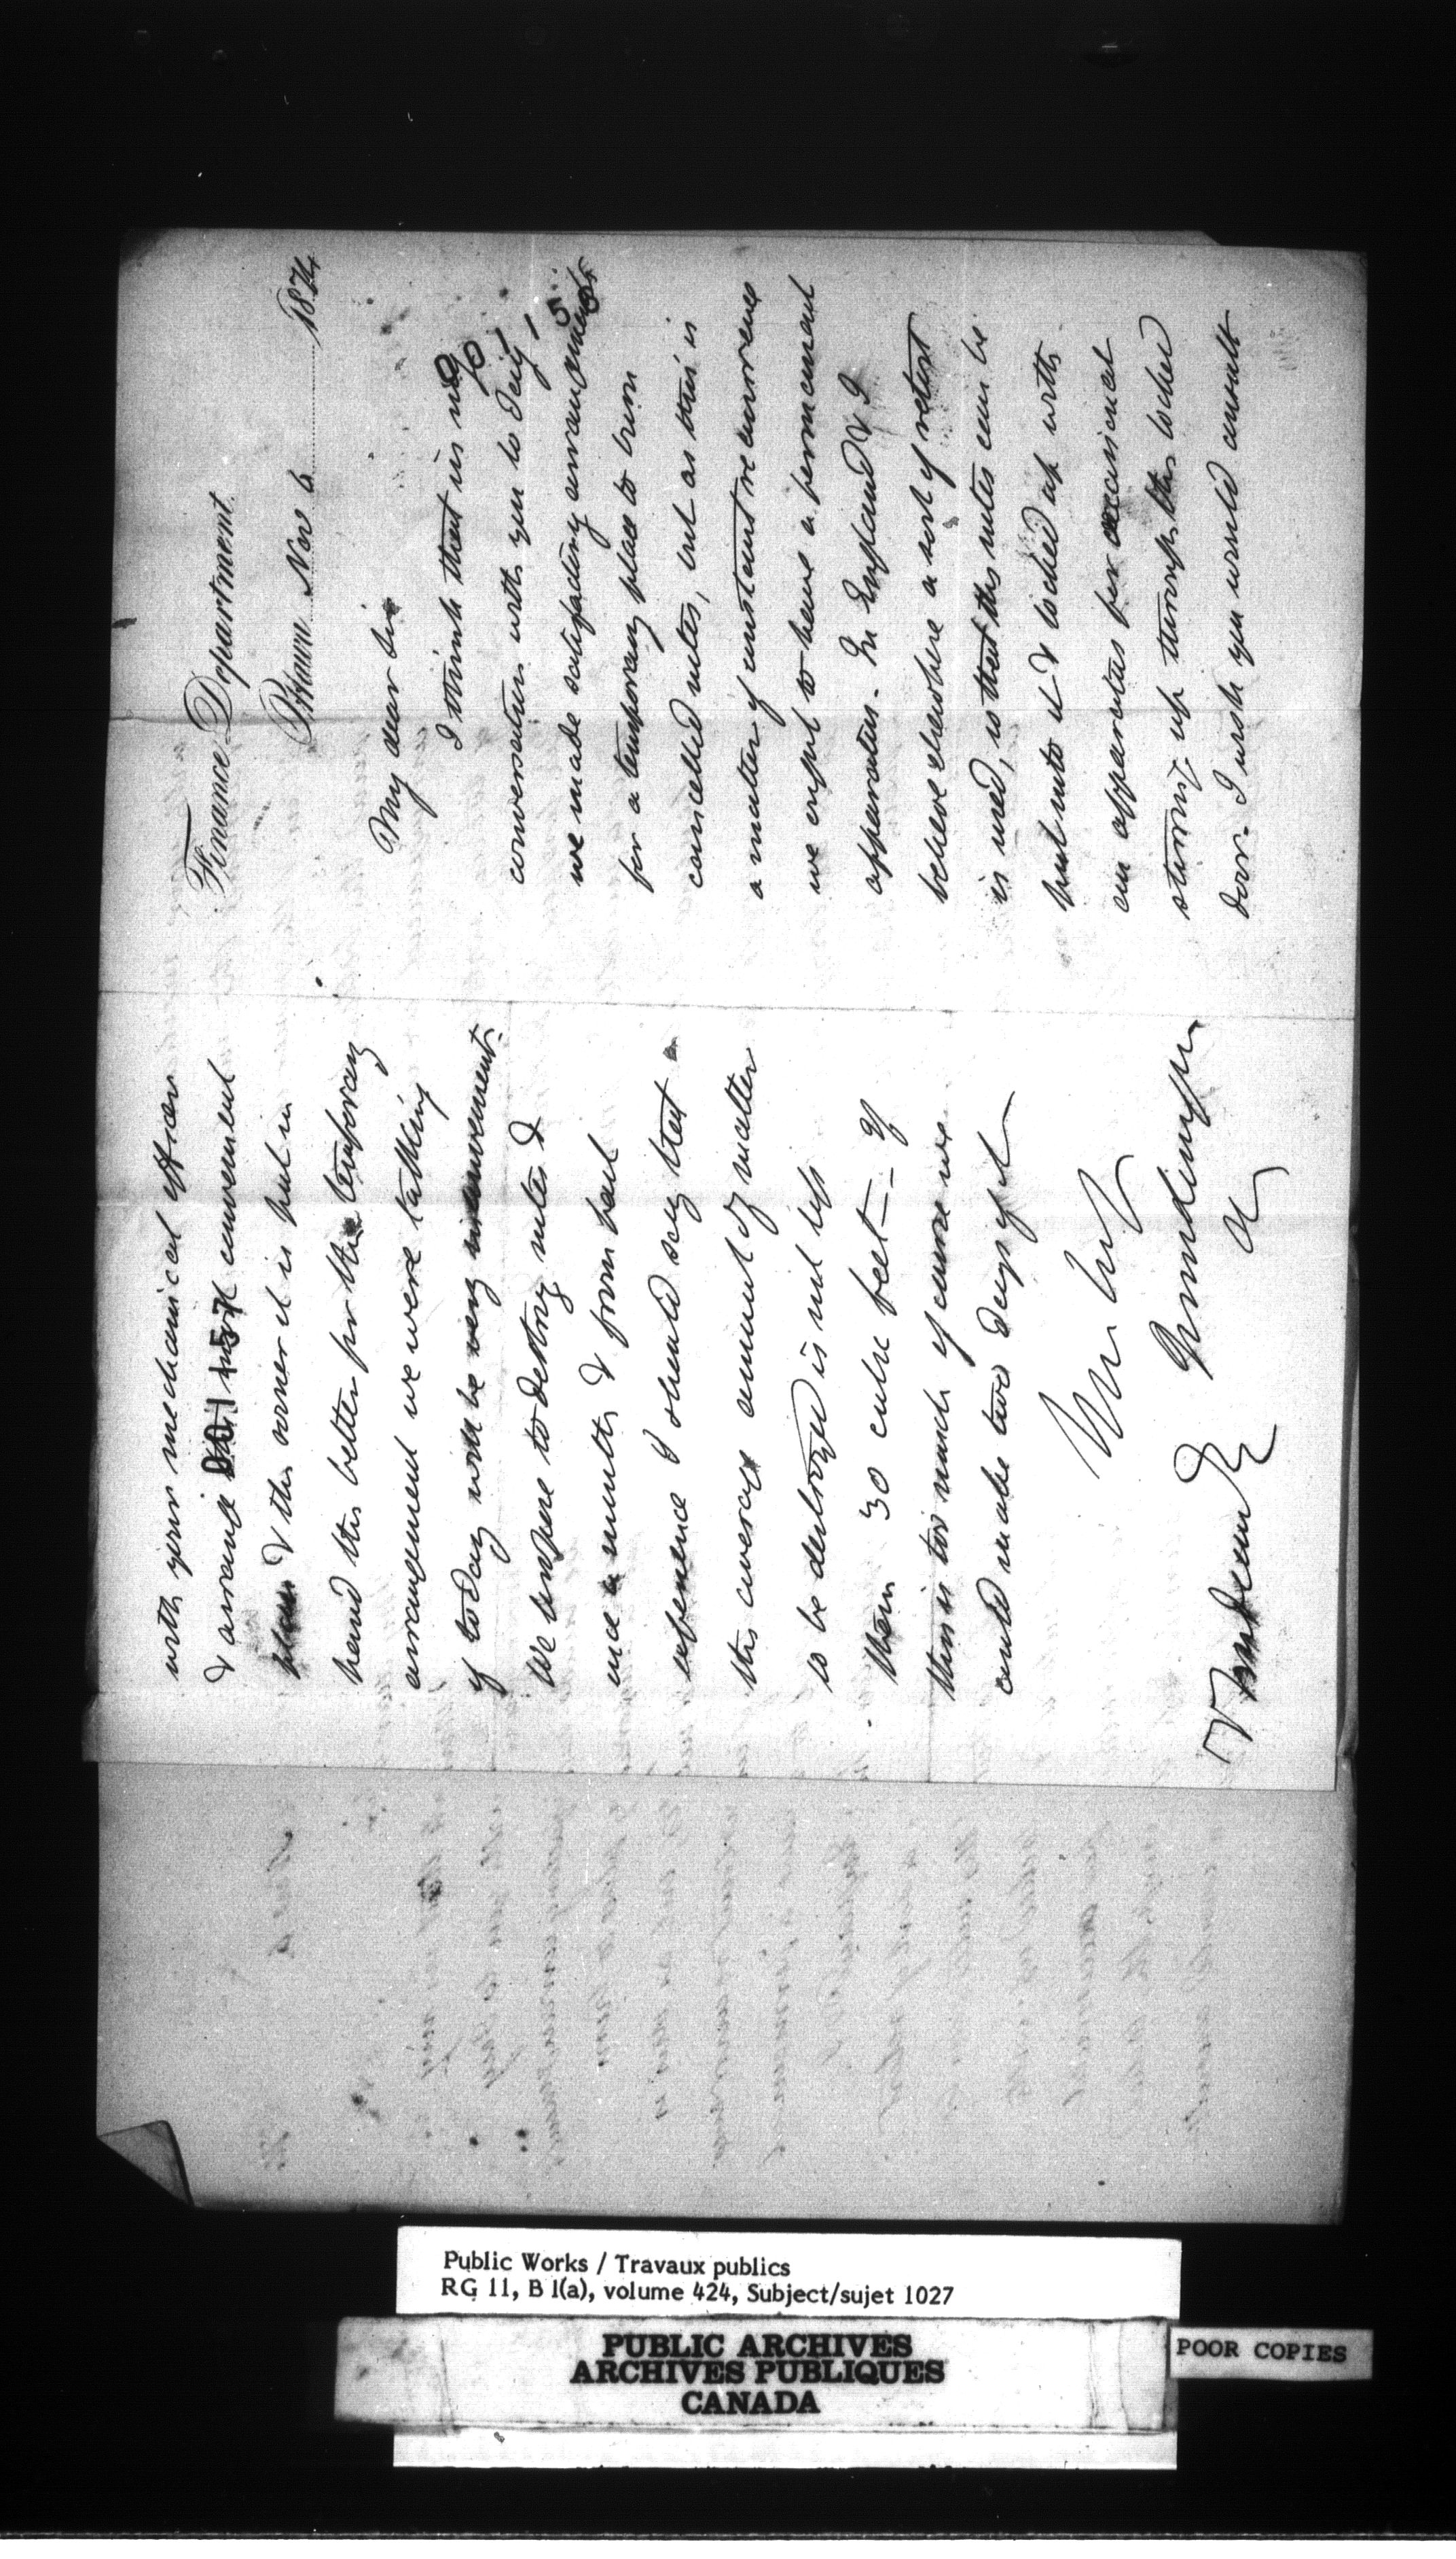 Finance Department
Ottawa Nov 6 1874
My dear Sir
I think that in my
conversation with you to day
we made satisfactory arrangements
for a temporary place to burn
cancelled notes, but as this is
a matter of constant recurrence
we ought to have a permanent
apparatus. In England & I
believe elsewhere a sort of retort
is used, so that the notes can be
put into it & locked up with
an apparatus for occasional
stirring up through the locked
door. I wish you would consult
with your mechanical officer
& arrange most convenient
place & the sooner it is put in
hand the better for the temporary
arrangement we were talking
of to day will be very inconvenient.
We propose to destroy notes
once a month & from past
experience I should say that
the average amount of matter
to be destroyed is not less
than 30 cubic feet — If
this is too much of course we
could make two days of it
Yrs truly
T Trudeau Esq
901155
901157
Public Works / Travaux publics
RG 11, B 1(a), volume 424, Subject/sujet 1027
PUBLIC ARCHIVES
ARCHIVES PUBLIQUES
CANADA
POOR COPIES